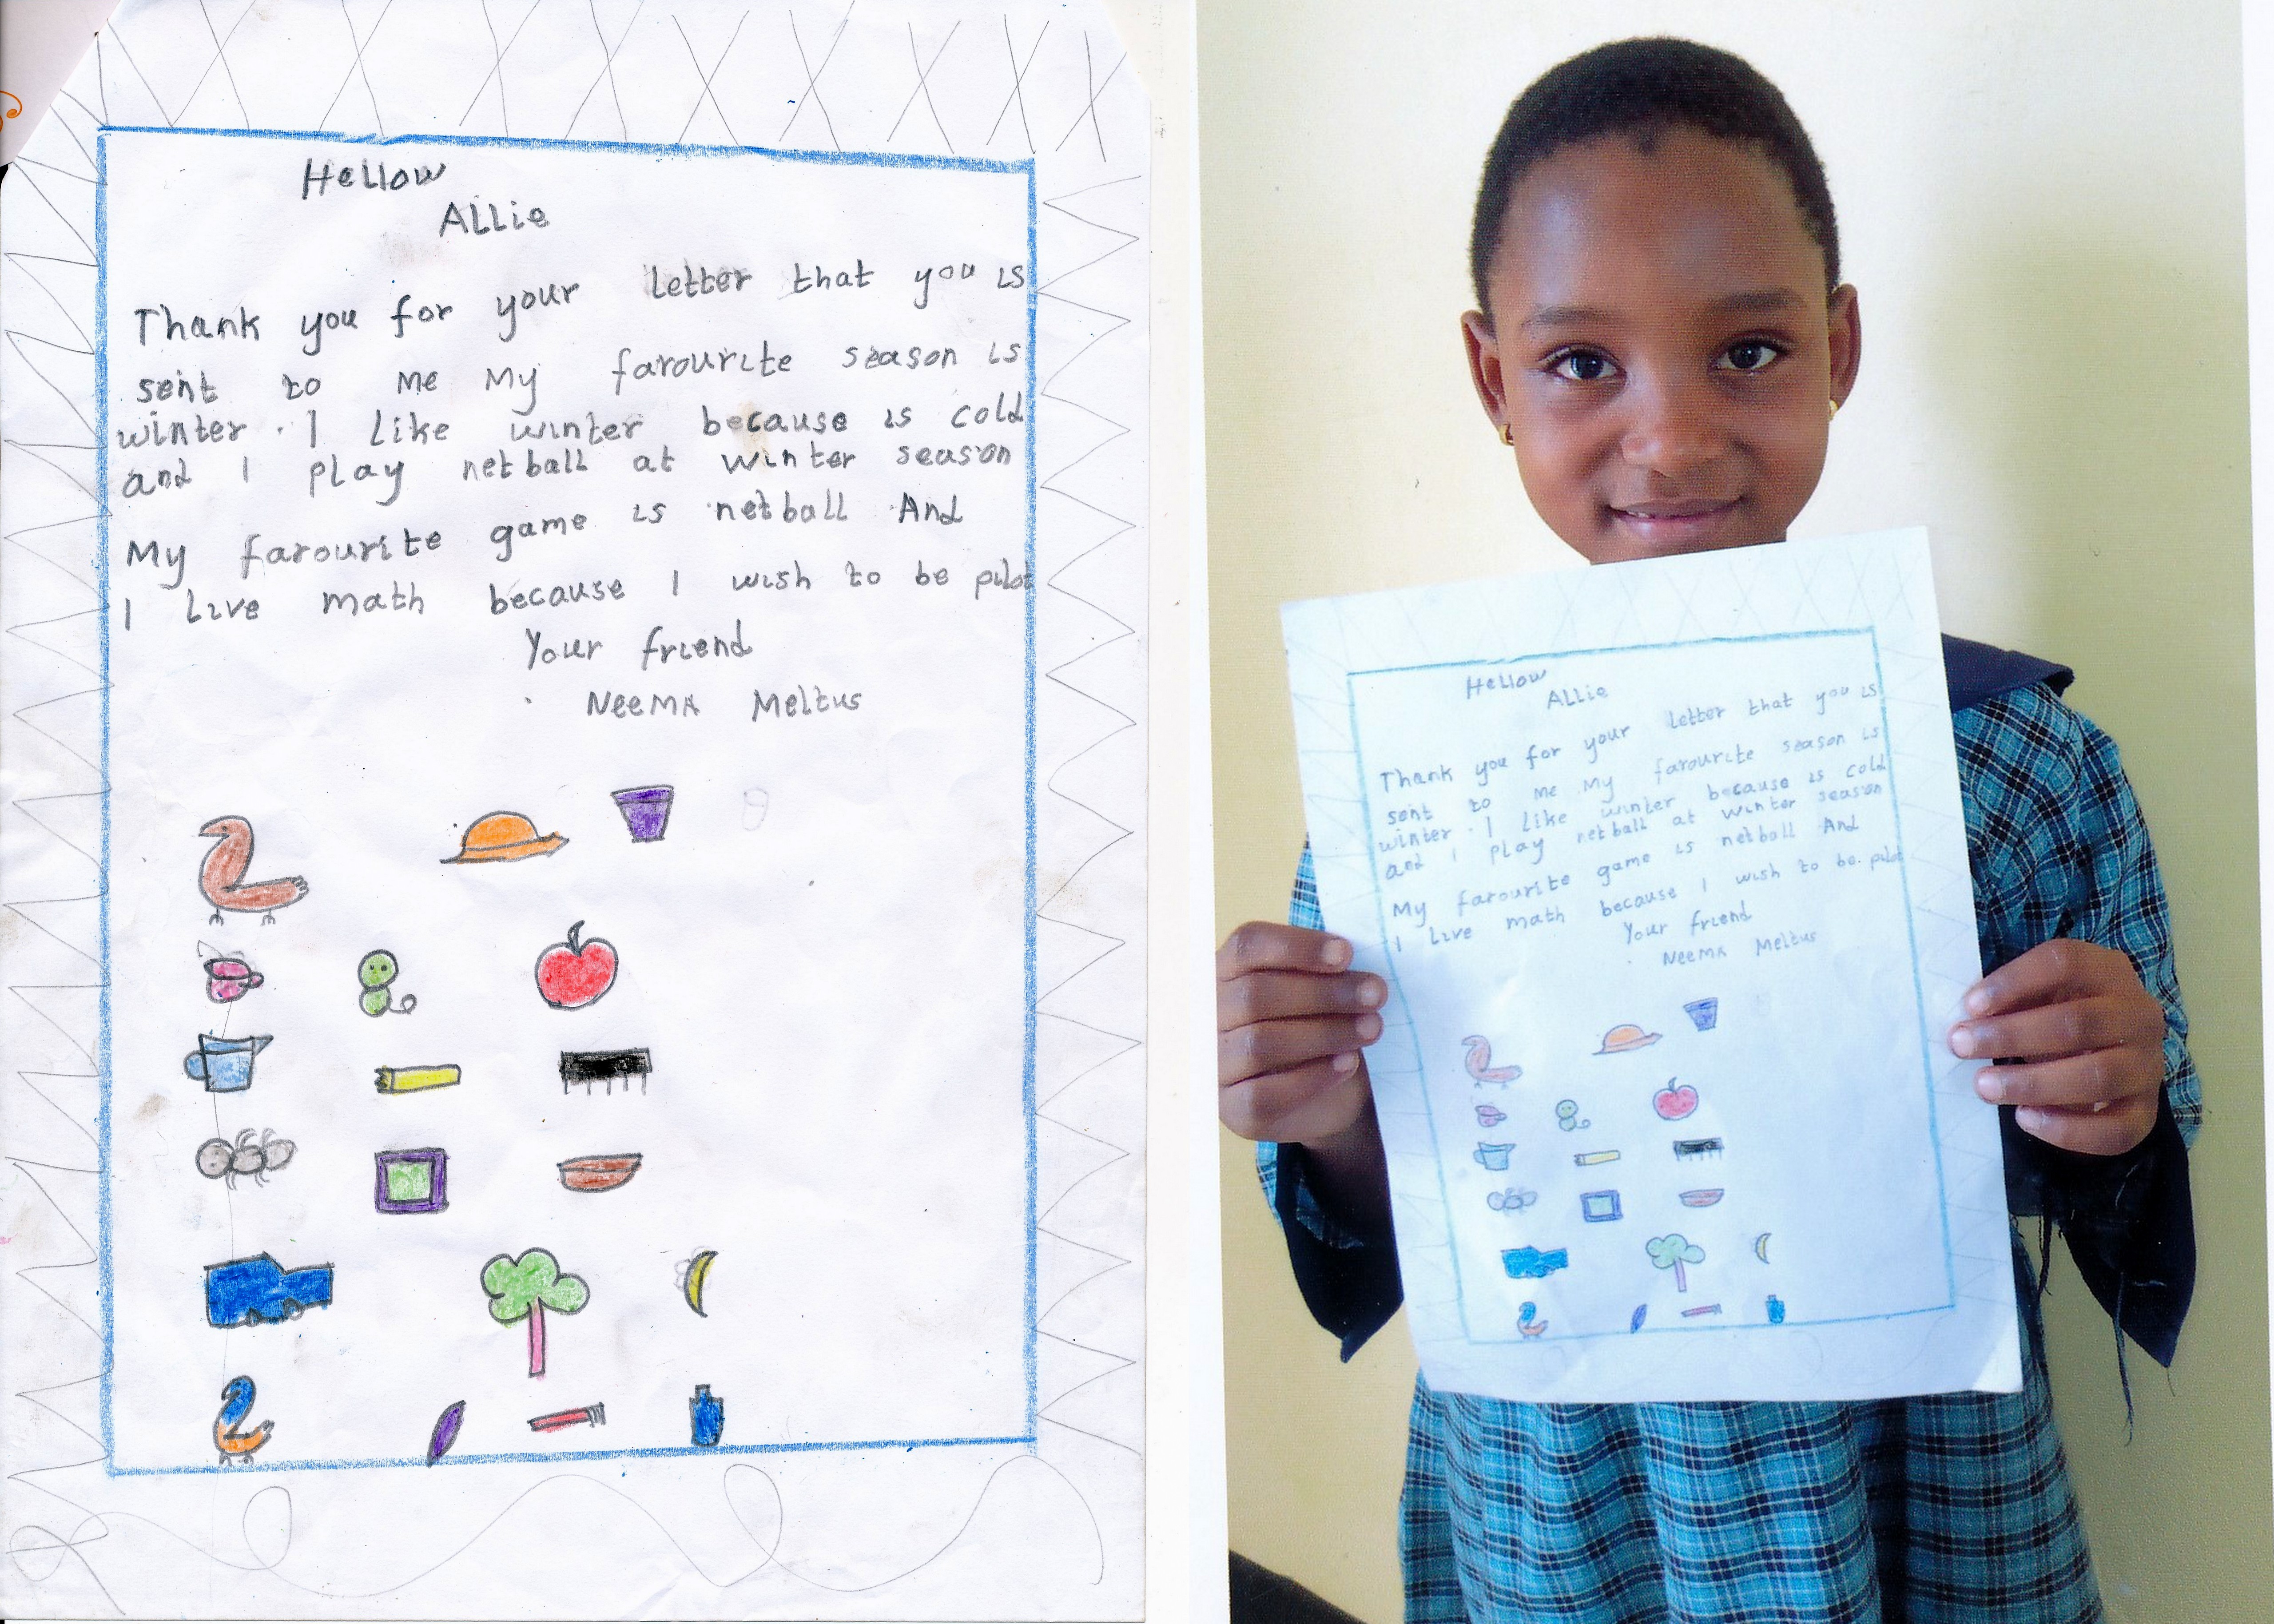 Hellow
Allie
Thank you for your letter that you is
sent to me My farourite season is
winter. I like winter because is cold
and I play netball at winter season
My farourite game is netball And
I Live math because I wish to be pilot
Your friend
Neema Meltus
Hellow
Allie
Thank you for your letter that you is
sent to me My farourite season is
winter. I like winter because is cold
and I play netball at winter season
My farourite game is netball And
I Live math because I wish to be pilot
Your friend
Neema Meltus